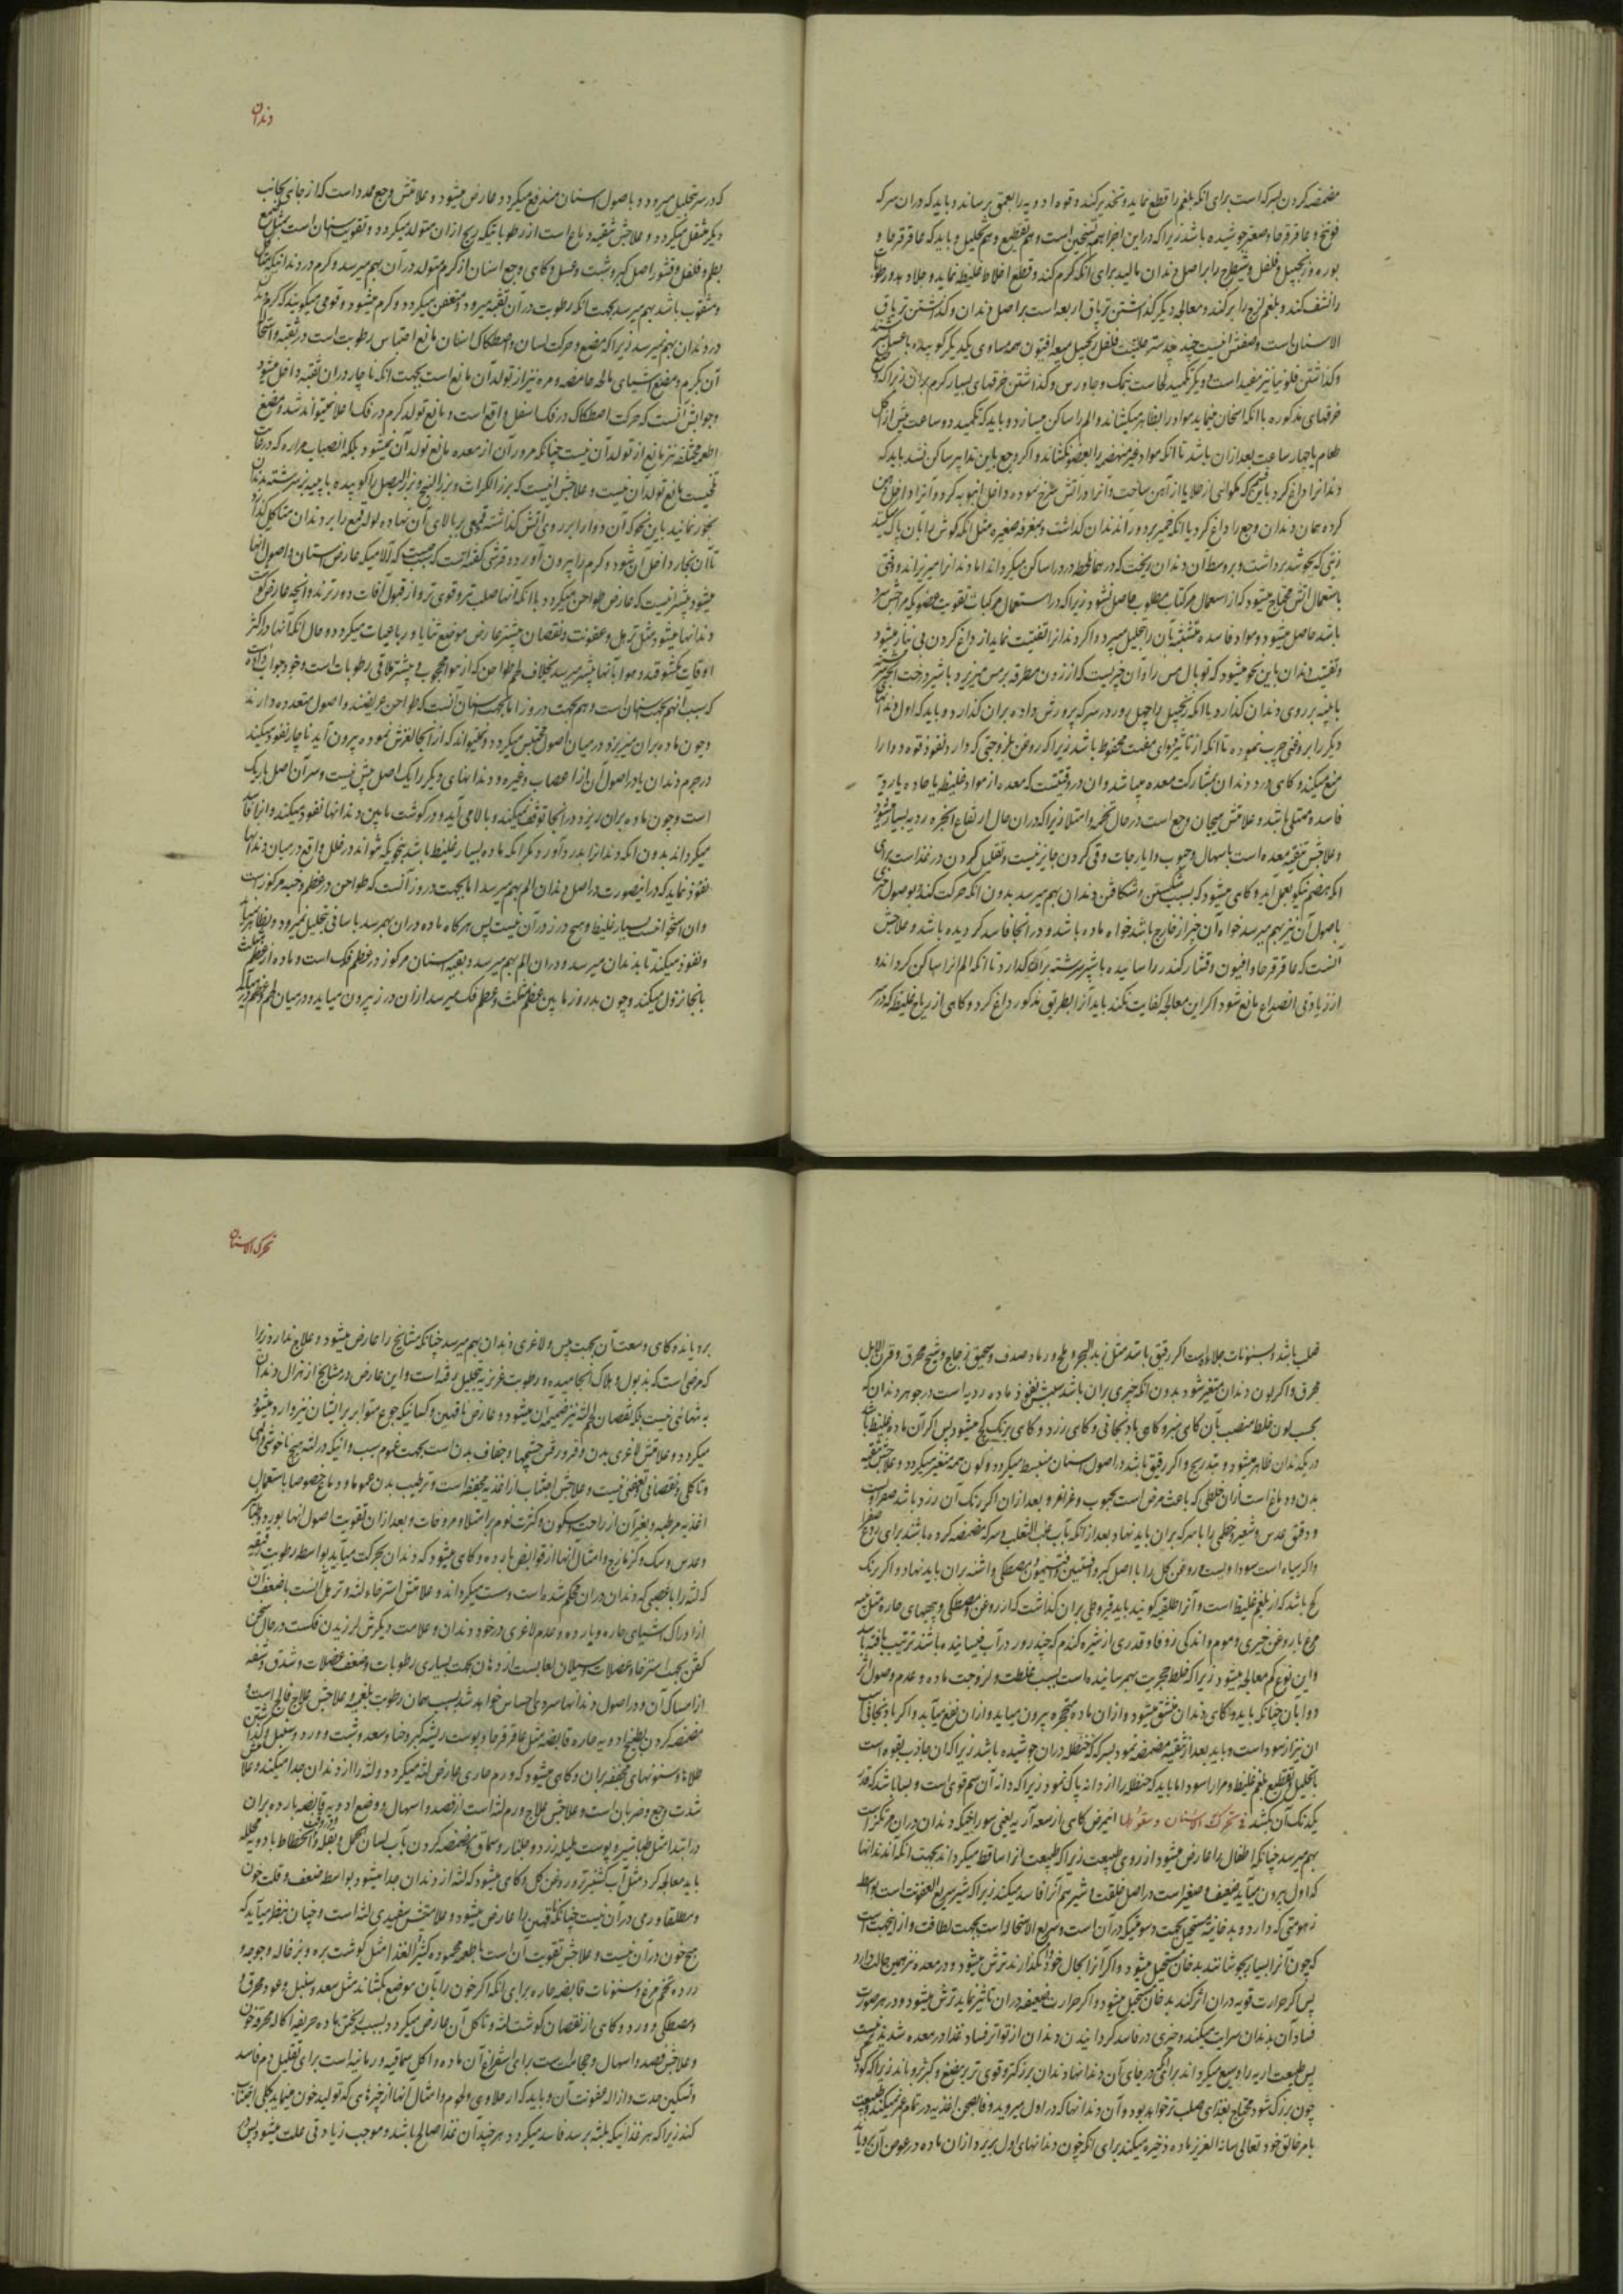 مضمضه کردن بسرکه است برای انکه بلغم را قطع نماید و تخدیر کند و قوه ادویه را بعمق برساند و باید که در ان سرکه
فوتنج و عاقرقرحا و صعتر جوشیده باشد زیرا که در این اجزا هم تسخین است و هم تقطیع و هم تحلیل و باید که عاقرقرحا و
بوره و زنجبیل و فلفل و شیطرج را بر اصل دندان مالید برای انکه گرم کند و قطع اخلاط غلیظ نماید و جلا دهد و رطوبات
را نشف کند و بلغم لزج را بر کند و معالجه دیگر گذاشتن تریاق اربعه است بر اصل دندان و گذاشتن تریاق
الاسنان است و صفتش اینست جند بیدستر حلتیت فلفل زنجبیل میعه افیون همه مساوی یکدیگر کوبیده با عسل
و گذاشتن فلونیا نیز مفید است و دیگر تکمید لحاست بنمک و جاورس و گذاشتن خرقهای بسیار گرم بران زیرا که
خرقهای مذکوره با انکه اسخان مینماید مواد را بظاهر میکشاند و الم را ساکن میسازد و باید که تکمید دو ساعت پیش از اکل
طعام یا چهار ساعت بعد از ان باشد تا انکه مواد غیر منهضم را بعضو نکشاند و اگر وجع باین تدابیر ساکن نشد باید که
دندانرا داغ کرد باین قسم که مکوائی از طلا یا از آهن ساخت و آنرا در آتش سرخ نموده و داخل انبوبه کرد و آنرا داخل دهن
کرده همان دندان وجع را داغ کرد یا انکه خمیر بر دور آن دندان گذاشت و بمغرفه صغیره مثل انکه گوش را بان پاک میکنند
زیتی که بجوشد برداشت و بر وسط آن دندان ریخت که در همان لحظه درد را ساکن میگرداند اما دندانرا میریزاند و وقتی
باستعمال آتش محتاج میشود که از استعمال مرکبات مطلوب حاصل نشود زیرا که در استعمال مرکبات تقویت عضو
باشد حاصل میشود و مواد فاسده متشبثه بآن را تحلیل میبرد و اگر دندانرا تفتیت نماید از داغ کردن بی نیاز میشود
و تفتیت دندان باین نحو میشود که توبال مس را و آن چیزیست که از زدن مطرقه بر مس میریزد با شیر درخت انجیر سرشته
با پنبه بر روی دندان گذارد یا انکه زنجبیل را چهل روز در سرکه پرورش داده بران گذارد و باید که اول دندانهای
دیگر را بروغنی چرب نموده تا انکه از تأثیر دوای مفتت محفوظ باشد زیرا که روغن بلزوجتی که دارد نفوذ قوه دوا را
منع میکند و گاهی درد دندان بمشارکت معده میباشد و ان در وقتیست که معده از مواد غلیظ یا حاده یا ردیه
فاسده ممتلی باشد و علامتش هیجان وجع است در حال تخمه و امتلا زیرا که دران حال ارتفاع ابخره ردیه بسیار میشود
و علاجش تنقیه معده است باسهال و حبوب و ایارجات و قی کردن جایز نیست و تقلیل کردن در غذاست برای
انکه هضم نیکو بعمل اید و گاهی میشود که بسبب شکستن و شکافتن دندان بهم میرسد بدون انکه حرکت کند و بوصول چیزی
باصول آن نیز بهم میرسد خواه آن چیز از خارج باشد خواه ماده باشد و در انجا فاسد گردیده باشد و علاجش
آنست که عاقرقرحا و افیون و قثار کندر را سائیده با شیر سرشته بران گذارد تا انکه الم انرا ساکن گرداند و
از زیادتی انصداع مانع شود اگر این معالجه کفایت نکند باید آنرا بطریق مذکور داغ کرد و گاهی از ریاح غلیظ که در سر
دندان
که در سر تحلیل میرود و باصول اسنان مندفع میگردد عارض میشود و علامتش وجع ممدد است که از جانبی بجانب
دیگر منتقل میگردد و علاجش تنقیه دماغ است از رطوباتیکه ریح ازان متولد میگردد و تقویت اسنان است بمثل
بطم و فلفل و قشور اصل کبر و شبت و عسل و گاهی وجع اسنان از کرم متولد در آن بهم میرسد و کرم در دندانیکه متاکل
و مثقوب باشد بهم میرسد بجهت انکه رطوبت در ان ثقبه میرود و متعفن میگردد و کرم میشود و قومی میگویند که کرم
در دندان بهم نمیرسد زیرا که مضغ و حرکت لسان و اصطکاک اسنان مانع احتباس رطوبت است در ثقبه و استحاله
آن بکرم و مضغ اشیای مالحه حامضه و مره نیز از تولد آن مانع است بجهت انکه ناچار دران ثقبه داخل میشود
و جوابش آنست که حرکت اصطکاک در فک اسفل واقع است و مانع تولد کرم در فک اعلا نمیتواند شد و مضغ
اطعمه مختلفه نیز مانع از تولد آن نیست چنانکه مرور آن از معده مانع تولد آن نمیشود بلکه انصباب مراره که در
نیست مانع تولد آن نیست و علاجش اینست که بزر الکراث و بزر البنج و بزر البصل را کوبیده با پیه بز سرشته
بخور نمائید باین نحو که آن دوا را بر روی آتش گذاشته قمعی بر بالای آن نهاده لوله قمع را بر دندان متاکل گذارد
تا آن بخار داخل آن شود و کرم را بیرون آورد و قرشی گفته است که سبب چیست که آلامیکه عارض اسنان و اصول انها
میشود بیشتر نیست که عارض طواحن میگردد با انکه آنها صلب تر و قوی تر و از قبول آفات دورترند
دندانها میشود مثل ترهل و عفونت و نقصان بیشتر عارض موضع ثنایا و رباعیات میگردد و حال انکه آنها در اکثر
که سبب انهم بجهت اسنان است و هم بجهت درزها اما بجهت اسنان آنست که طواحن عریضند و اصول متعدده دارند
و چون ماده بران میریزد در میان اصول محتبس میگردد و نمیتواند که از انجا لغزش نموده بیرون آید ناچار نفوذ میکند
در جرم دندان یا در اصول آن از اعصاب و غیره و دندانهای دیگر را یک اصل بیش نیست و سر آن اصل باریک
است و چون ماده بران ریزد در انجا توقف نمیکند و بالا می آید و در گوشت مابین دندانها نفوذ میکند
میگرداند بدون انکه دندانرا بدرد آورد مگر انکه ماده بسیار غلیظ باشد بنحویکه نتواند در خلل واقع در میان دندانها
نفوذ نماید که در اینصورت در اصل دندان الم بهم میرسد اما بجهت درزها آنست که طواحن در عظم وجنه مرکوزست
وان استخوانیست بسیار غلیظ و هیچ درز در آن نیست پس هرگاه ماده دران بهمرسد باسانی تحلیل نمیرود و بظاهر
و نفوذ میکند تا بدندان میرسد و دران الم بهم میرسد و بقیه اسنان مرکوز در عظم فک است و ماده از عظم
بانجا نزول میکند و چون بدرز مابین عظم مثلث و عظم فک میرسد ازان درز بیرون میاید و در میان لحم
صلب باشد و سنونات جلا دهنده است اگر رقیق باشد مثل زبد البحر و ملح و رماد صدف و سحیق زجاج و شیح محرق و قرن الایل
محرق و اگر لون دندان متغیر شود بدون انکه چیزی بران باشد سببش نفوذ ماده ردیه است در جوهر دندان که
بحسب لون خلط منصب بآن گاهی سبز و گاهی بادنجانی و گاهی زرد و گاهی برنگ گچ میشود پس اگر آن ماده غلیظ باشد
در یکدندان ظاهر میشود و بتدریج و اگر رقیق باشد در اصول اسنان منبسط میگردد و لون همه متغیر میگردد و علاجش تنقیه
بدن و دماغ است از ان خلطی که باعث مرض است بحبوب و غراغر و بعد از ان اگر رنگ آن زرد باشد صفراویست
و دقیق عدس و شعیر و خطمی را با سرکه بران باید نهاد بعد از انکه بآب عنب الثعلب و سرکه مضمضه کرده باشند برای ردع صفرا
و اگر سیاه است سوداویست و روغن گل را با اصل کبر و افسنتین و افتیمون و مصطکی و اشنه بران باید نهاد و اگر برنگ
گچ باشد که از بلغم غلیظ است و آنرا طلیقه گویند باید قیروطی بران گذاشت که از روغن و مصطکی و پیههای حاره مثل پیه
مرغ با روغن خیری و موم و اندکی زوفا و قدری از نشیره گندم که چند روز در آب خیسانیده باشند ترتیب یافته باشد
و این نوع کم معالجه میشود زیرا که خلط تحجریت بهمرسانیده است بسبب غلظت و لزوجت ماده و عدم وصول اثر
دوا بآن چنانکه باید و گاهی دندان منشق میشود و از ان ماده متحجره بیرون میاید و ازان نفع میآید و اگر بادنجانی است
ان نیز از سوداست و باید بعد از تنقیه مضمضه نمود بسرکه که حنظل دران جوشیده باشد زیرا که آن جاذب بقوه است
با تحلیل و تقطیع بلغم غلیظ و مرار اسود اما باید که حنظل را از دانه پاک نمود زیرا که دانه آن سم قوی است و بسا باشد که قدر
یکدانگ آن بکشد فی تحرک الاسنان و سقوطها این مرض گاهی از سعه آریه یعنی سوراخیکه دندان دران مرتکز است
بهم میرسد چنانکه اطفال را عارض میشود از روی طبیعت زیرا که طبیعت انرا ساقط میگرداند بجهت انکه آن دندانها
که اول بیرون میآید ضعیف و صغیر است در اصل خلقت و شیر هم آنرا فاسد میکند زیرا که شیر سریع العفونت است بواسطه
زهومتی که دارد و بدخانیه مستحیل بجهت دسومتیکه در آن است و سریع الاستحاله است بجهت لطافت و از اینجهت است
که چون آنرا بسیار بجوشانند بدخان مستحیل میشود و اگر آنرا بحال خود واگذارند ترش میشود و در معده نیز همین حالت دارد
پس اگر حرارت قویه دران اثر کند بدخان مستحیل میشود و اگر حرارت ضعیفه دران تاثیر نماید ترش میشود و در هر صورت
فساد آن بدندان سرایت میکند و چیزی در فاسد گردانیدن دندان از تواتر فساد غذا در معده شدیدتر نیست
پس طبیعت اریه را وسیع میگرداند برای انکه در جای آن دندانها دندان بزرگتر و قوی تر بر مضغ و کبر بروید زیرا که کودک
چون بزرگ شود محتاج بغذای صلب تر خواهد بود و آن دندانها که در اول میروید وفا بمضغ اغذیه در تمام عمر نمیکند و طبیعت
بامر خالق خود تعالی شانه العزیز ماده ذخیره میکند برای انکه چون دندانهای اول بریزد ازان ماده در عوض آن برویاند
تحرک الاسنان
برویاند و گاهی وسعت آن بجهت یبس و لاغری دندان بهم میرسد چنانکه مشایخ را عارض میشود و علاج ندارد زیرا
که مرضی است که بذبول و هلاک انجامیده و رطوبت غریزیه تحلیل رفته است و این عارض در مشایخ از هزال دندان
به تنهائی نیست بلکه نقصان لحم لثه نیز ضمیمه آن میشود و عارض ناقهین و کسانیکه جوع متواتر بر ایشان نیز وارد میشود
میگردد و علامتش لاغری بدن و فرو رفتن چشمها و جفاف بدن است بجهت عموم سبب و اینکه در لثه هیچ ناخوشی
و تاکلی و نقصانی و عفنی نیست و علاجش اجتناب از اغذیه مجففه است و ترطیب بدن عموما و دماغ خصوصا باستعمال
اغذیه مرطبه و بغیر آن از راحت و سکون و کثرت نوم بر امتلا و مروخات و بعد از ان تقویت اصول انها بورد و طباشیر
و عدس و سک و کزمازج و امثال آنها از قوابض بارده و گاهی میشود که دندان بحرکت میآید بواسطه رطوبت رقیقه
که لثه را با عصبی که دندان دران محکم شده است و سست میگرداند و علامتش استرخاء لثه و ترهل آنست با ضعف آن
از ادراک اشیای حاره و بارده و عدم لاغری در خود دندان و علامت دیگرش لرزیدن فک است در حال سخن
گفتن بجهت استرخاء عضلات و سیلان لعابست از دهان بجهت بسیاری رطوبات و ضعف عضلات و شدق و شفه
از امساک آن و در اصول دندانها سردی احساس خواهد شد بسبب همان رطوبت بلغمیه و علاجش علاج فالج است و
مضمضه کردن بطبیخ ادویه حاره قابضه مثل عاقرقرحا و پوست ریشه کبر و حنا و سعد و شبت و ورد و سنبل و گذاشتن
طلاها و سنونهای مجففه بران و گاهی میشود که ورم حاری عارض لثه میگردد و لثه را از دندان جدا میکند و علامتش
شدت وجع و ضربان است و علاجش علاج ورم لثه است از فصد و اسهال و وضع ادویه قابضه بارده بران
در ابتدا مثل طباشیر و پوست هلیله زرد و جلنار و سماق و مضمضه کردن بآب لسان الحمل و بقله و در وقت انحطاط بادویه محلله
باید معالجه کرد مثل آب کشنیز تر و روغن گل و گاهی میشود که لثه از دندان جدا میشود بواسطه ضعف و قلت خون
و مطلقا ورمی در آن نیست چنانکه ناقهین را عارض میشود و علامتش سفیدی لثه است و چنان بنظر میآید که
هیچ خون در آن نیست و علاجش تقویت آن است باطعمه محموده کثیر الغذا مثل گوشت بره و بزغاله و جوجه و
زرده تخم مرغ و سنونات قابضه حاره برای انکه اگر خون را بآن موضع بکشاند مثل سعد و سنبل و عود محرق و
و مصطکی و ورد و گاهی از نقصان گوشت لثه و تاکل آن عارض میگردد بسبب ریختن ماده حریفه اکاله محرقه خون
و علاجش فصد و اسهال و حجامت است برای استفراغ آن ماده و اکل سماقیه و رمانیه است برای تقلیل دم فاسد
و تسکین حدت و ازاله عفونت آن و باید که از حلاوی و لحوم و امثال انها از چیزهائی که تولید خون مینماید بکلی اجتناب
کنند زیرا که هر غذا اینکه بلثه برسد فاسد میگردد هر چند آن غذا صالح باشد و موجب زیادتی علت میشود پس